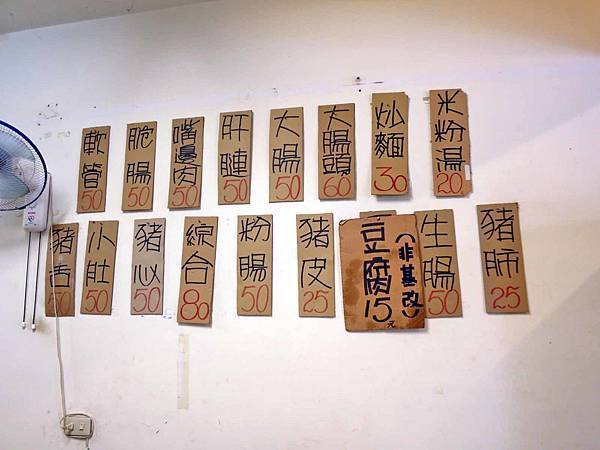 米粉湯 20
炒麵 30
大腸頭 60
大腸 50
肝腱 50
嘴邊肉 50
脆腸 50
軟管 50
豬肺 25
生腸 50
豆腐 (非基改) 15元
豬皮 25
粉腸 50
綜合 80
豬心 50
小肚 50
豬舌 50